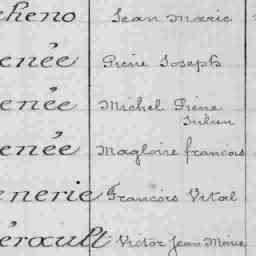 cheno Jean Marie
enée Pierre Joseph
enée Michel Pierre
Julien
enée Magloire francois
enerie Francois Vital
érault Victor Jean Marie